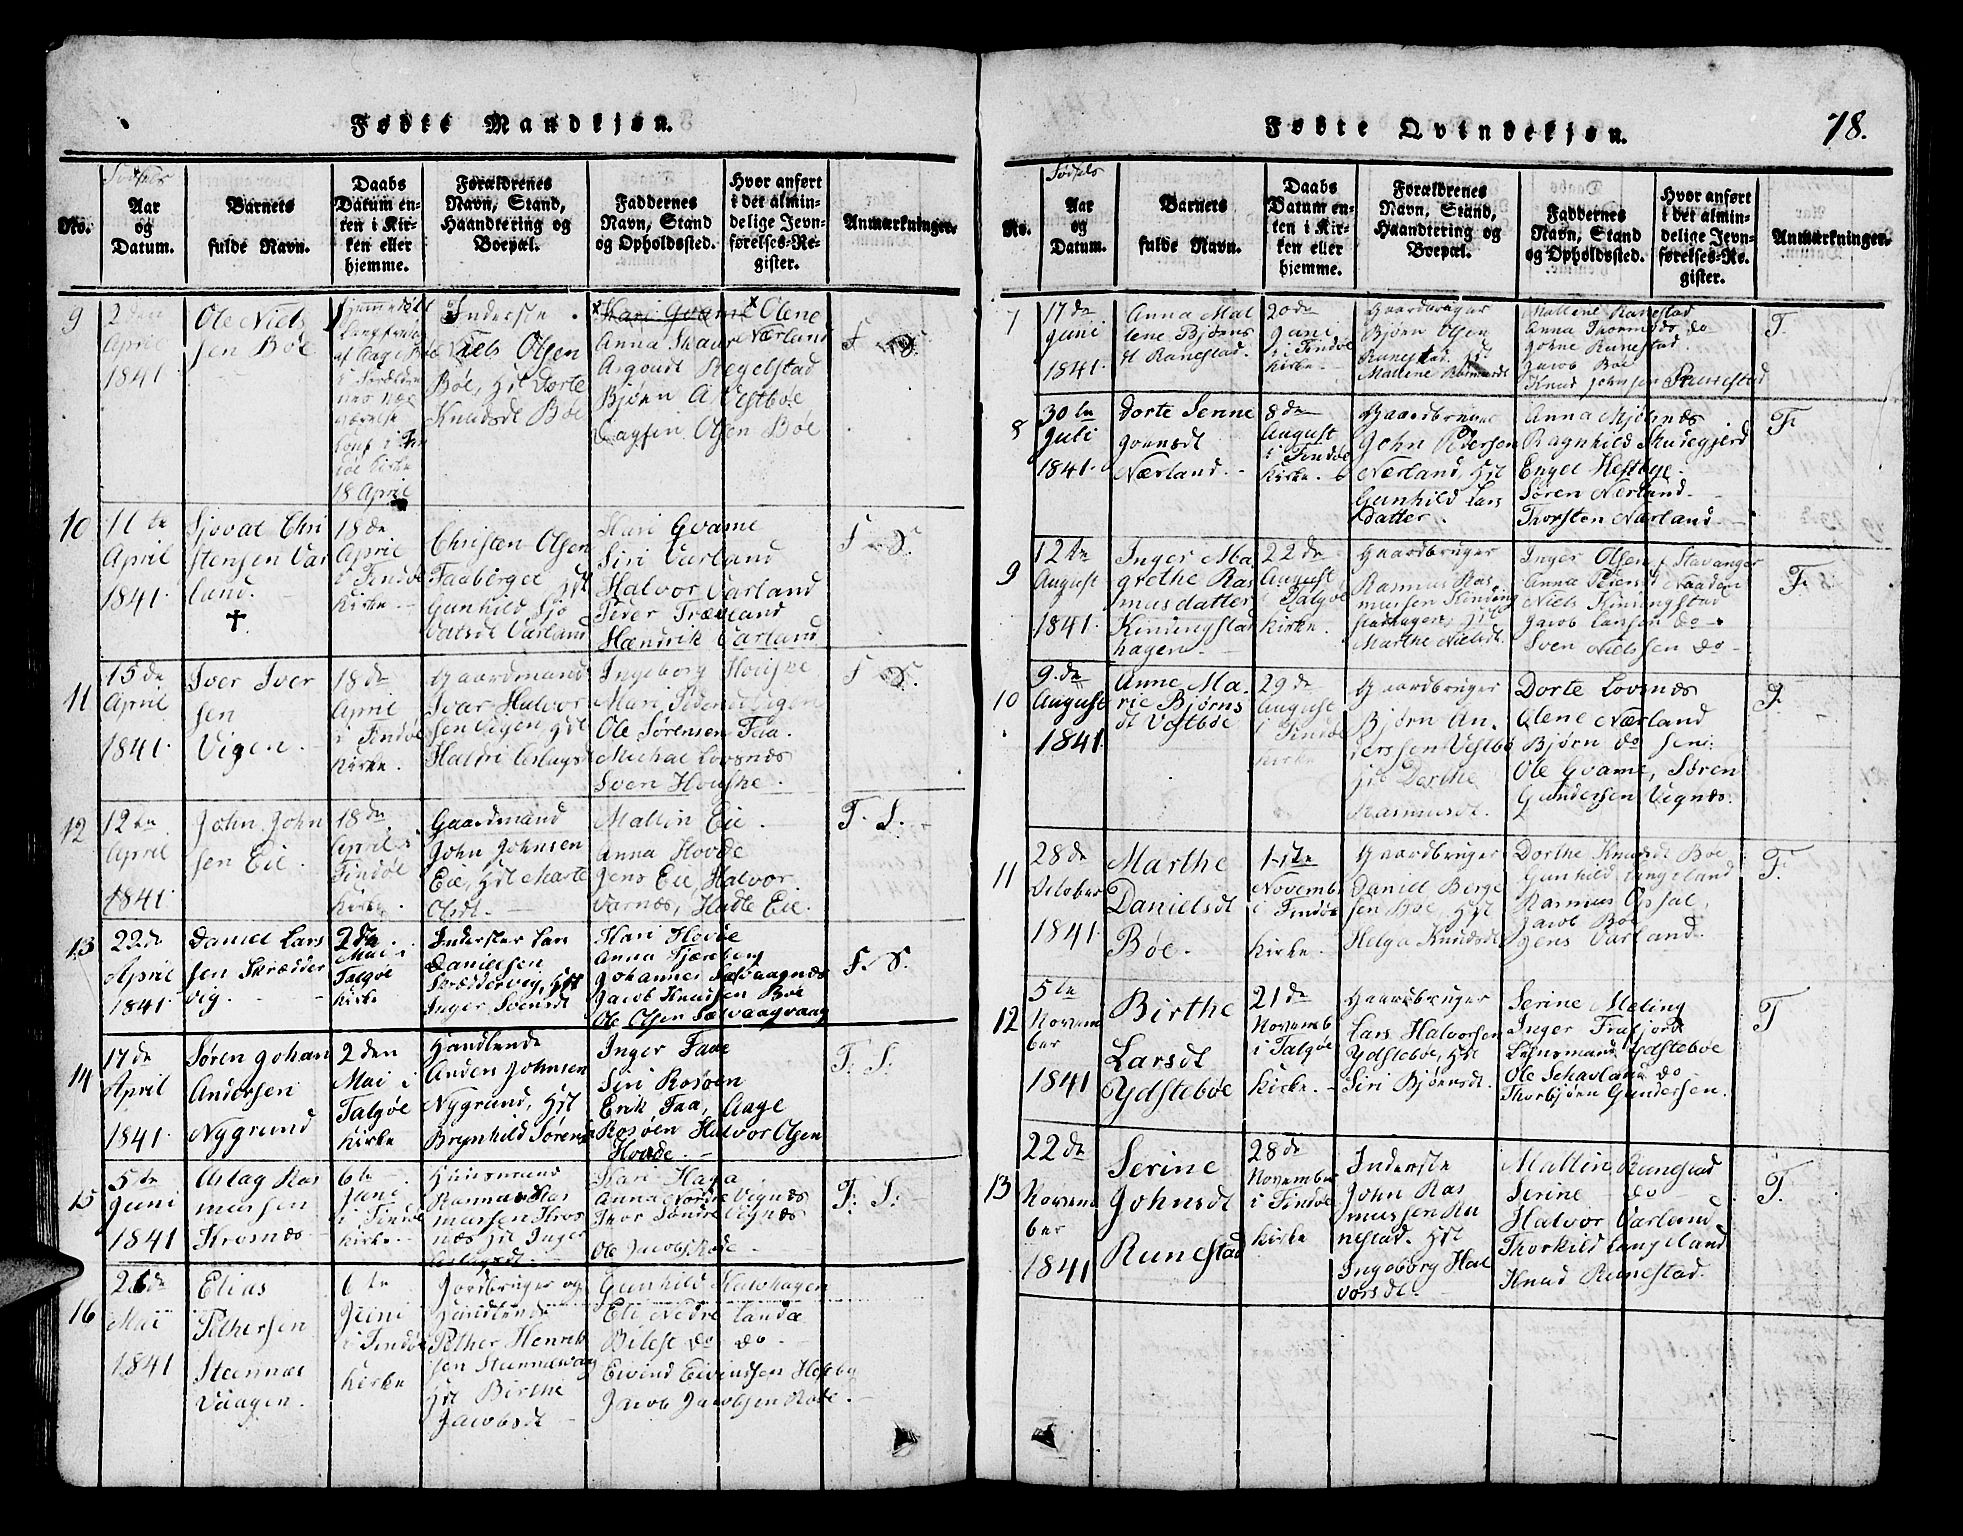 Fødte Mandkjøn.
No.
Fødsels
Aar
og
Datum.
Barnets
fulde Navn.
Daabs
Datum en-
ten i Kir-
ken eller
hjemme.
Forældrenes
Navn, Stand,
Haandtering og
Boepæl.
Faddernes
Navn, Stand
og Opholdssted.
Hvor anført
i det almin-
delige Jevn-
førelses-Re-
gister.
Anmærkninger.
9
2den
April
1841
Ole Niels
sen Bøe
18 April
Inderste
Niels Olsen
Bøe, Hst Dorte
Knudsdt Bøe
Kari Gvame Olene
Nærland
Asgoudt Regelstad
Bjørn A Vestbøe
Olsen Bøe
F S
10
11te
April
1841
Sjovat Chri
stensen Var
land.
18de
April
i Findøe
Kirke
Christen Olsen
Faaberget Hst
Gunhild Sjo
vatsdt Varland
Kari Gvame
Siri Varland
Halvor Varland
Peder Træland
Hændrik Varland
F S.
11
15de
April
1841.
Iver Iver
sen
Vigen
18de
April
i Findøe
Kirke.
Gaardmand
Ivar Halvor
sen Vigen Hst
Ingeborg Houske
Ole Sørensen Faa.
Michal Lovsnæs
Sven Houske.
F S.
12
12te
April
1841
John John
sen Eie.
18de
April i
Findøe
Kirke.
Gaardmand
John Johnsen
Eie, Hst Marte
Olsdt.
Mallin Eie.
Anna Hovde
Jens Eie, Halvor
Varnæs, Hadle Eie.
F. S.
13
22de
April
1841
Daniel Lars
sen Skrædder
vig.
2de
Mai i
Talgøe
Kirke
Inderster Lars
Danielsen
Skræddervig, Hst
Inger Svensdt
Kari Hovde
Anna Fjæreberg
Johannes Salvaagnæs
Jacob Knussen Bøe
Ole Olsen Salvaagvaag
F. S.
14
17de
April
1841.
Søren Johan
Andersen
Nygrund
2den
Mai i
Talgøe
Kirke
Handlende
Anders Johnsen
Nygrund, Hst
Brynhild Sørens
Inger Faae
Siri Rosøen
Erik Faa, Aage
Rosøen Halvor Olsen
Hovde.
F. S.
15
5te
Juni
1841
Aslag Ras
mussen
Krosnæs
6te
Juni
i Findøe
Kirke
Huusmand
Rasmus Ras
mussen Kros
næs Hst Inger
Aslagsdt
Kari Haga
Anna Nordre Vignæs
Thor Søndre Vignæs
Ole Jacobs Rode
F. S.
16
26de
Mai
1841
Elias
Pethersen
Steennæs
Vaagen.
6te
Juni
i Findøe
Kirke
Jordbruger og
Handlende
Pether Henrik
sen Steennesvaag
Hst Birthe
Jacobsdt
Gunhild Kalvhagen
Eli Nedre Landa
Do Do
Eivind Eivindsen Hestbye
Jacob Jacobsen Rode.
Fødte Qvindekjøn.
78.
No.
Fødsels
Aar
og
Datum.
Barnets
fulde Navn.
Daabs
Datum en-
ten i Kir-
ken eller
hjemme.
Forældrenes
Navn, Stand,
Haandtering og
Boepæl.
Faddernes
Navn, Stand
og Opholdssted.
Hvor anført
i det almin-
delige Jevn-
førelses-Re-
gister.
Anmærkninger.
7
17de
Juni
1841.
Anna Mal
lene Bjørns
dt Runestad.
20de
Juni
i Findøe
Kirke
Gaardbruger
Bjørn Olsen
Runestad. Hst
Mallene Rasmusdt
Mallene Runestad
Anna Thormods do
Johne Runestad.
Jacob Bøe
Knud Johnsen Runestad
F.
8
30te
Juli
1841.
Dorte Serine
Joensdt
Nærland.
8de
August
i Findøe
Kirke.
Gaardbruger
John Pedersen
Nærland, Hst
Gunhild Lars
datter.
Anna Mjølsnæs
Ragnhild Skudegjerd
Engel Hestbye.
Søren Nærland.
Thorsten Nærland
F.
9
12te
August
1841.
Inger Ma
grethe Ras
musdatter
Kindingstad
hagen
22de
August
i Talgøe
Kirke.
Gaardbruger
Rasmus Ras
mussen Kinding
stadhagen, Hst
Marthe Nielsdt.
Inger Olsen f. Stavanger
Anna Peders
Niels Kindingstad
Jacob Larsen do
Sven Nielssen do
F.
10
9de
August
1841.
Anne Ma
rie Bjørns
dt Vestbøe
29de
August
i Findøe
Kirke
Gaardbruger
Bjørn An
derssen Vestbø
Hst Dorthe
Rasmusdt.
Dorte Lovsnæs
Olene Nærland
Bjørn do seni:
Ole Gvame, Søren
Gundersen Vignæs.
F.
11
28de
October
1841.
Marthe
Danielsdt
Bøe.
1ste
Novembr
i Findøe
Kirke.
Gaardbruger
Daniel Børge
sen Bøe, Hst
Helga Knudsdt
Dorthe Knudsdt Bøe
Gunhild Langeland
Rasmus Opsal,
Jacob Bøe
Jens Varland.
F.
12
5te
Novem
ber
1841
Birthe
Larsdt
Ydstebøe
21de
Novemb
i Talgøe
Kirke.
Gaardbruger
Lars Halvorsen
Ydstebøe, Hst
Siri Bjørnsdt.
Serine Meling
Inger Frafjord
Lensmand Ydstebøe
Ole Schavland do
Thorbjørn Gundersen.
F
13
22de
Novem
ber
1841
Serine
Johnsdt
Runestad
28de
November
i Findøe
Kirke
Inderste
John Ras
mussen Ru
nestad. Hst
Ingeborg Hal
vorsdt
Mallin Runestad
Serine do
Halvor Varland
Thorkild Langeland
Knud Runestad.
F.